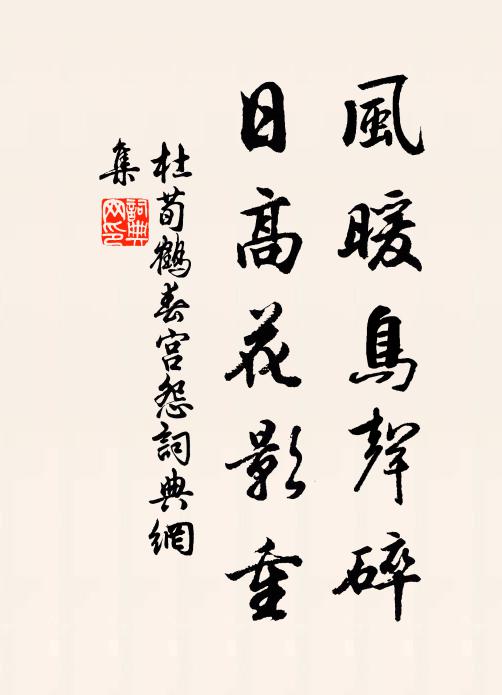 風暖鳥聲碎
日高花影重
杜荀鶴春宮怨詞典網
集
詞典
网印